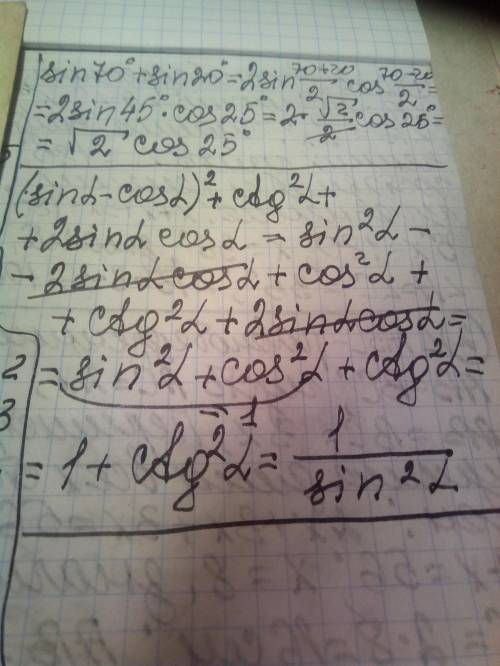 sin70°+sin20°=2sin (70+20)/2 cos (70-20)/2 =
=2sin45°·cos25°=2·√2/2 cos25°=
=√2 cos25°
(sinα-cosα)²+ctg²α+
+2sinα cosα = sin²α -
- 2sinα cosα + cos²α +
+ ctg²α + 2sinα cosα =
= sin²α + cos²α + ctg²α =
= 1
= 1 + ctg²α = 1/sin²α
2
3